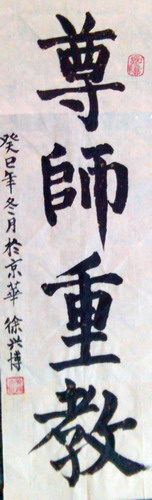 尊師重教
癸巳年冬月於京華 徐兴博